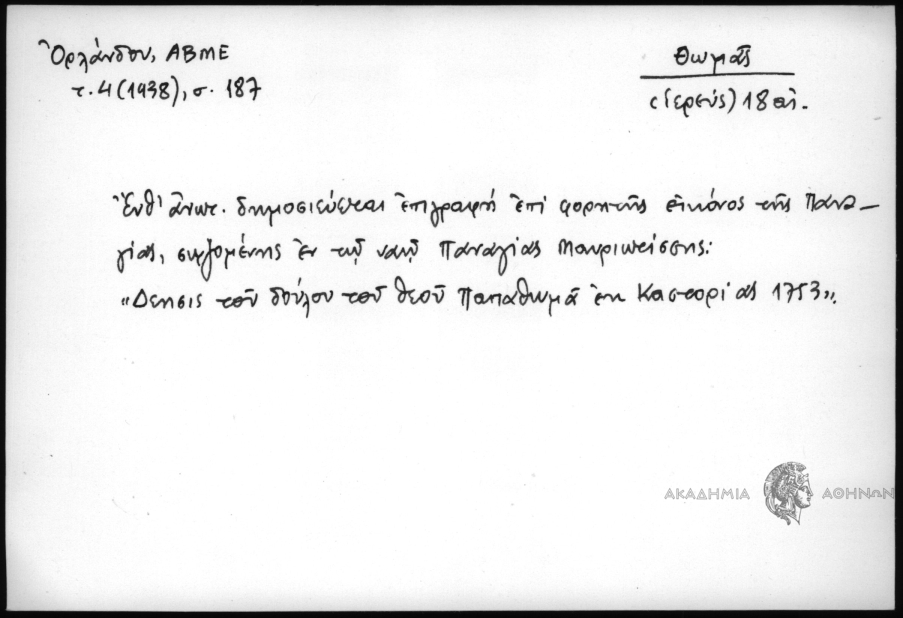 Ὀρλάνδου, ΑΒΜΕ
τ. 4 (1938), σ. 187
Θωμᾶς
(ἱερεύς) 18 αἰ.
Ἔνθ' ἀνωτ. δημοσιεύεται ἐπιγραφή ἐπί φορητῆς εἰκόνος τῆς Πανα-
γίας, σῳζομένης ἐν τῷ ναῷ Παναγίας Μαυριωτίσσης:
"Δέησις τοῦ δούλου τοῦ θεοῦ Παπαθωμᾶ ἐκ Καστορίας 1753".
ΑΚΑΔΗΜΙΑ ΑΘΗΝΩΝ